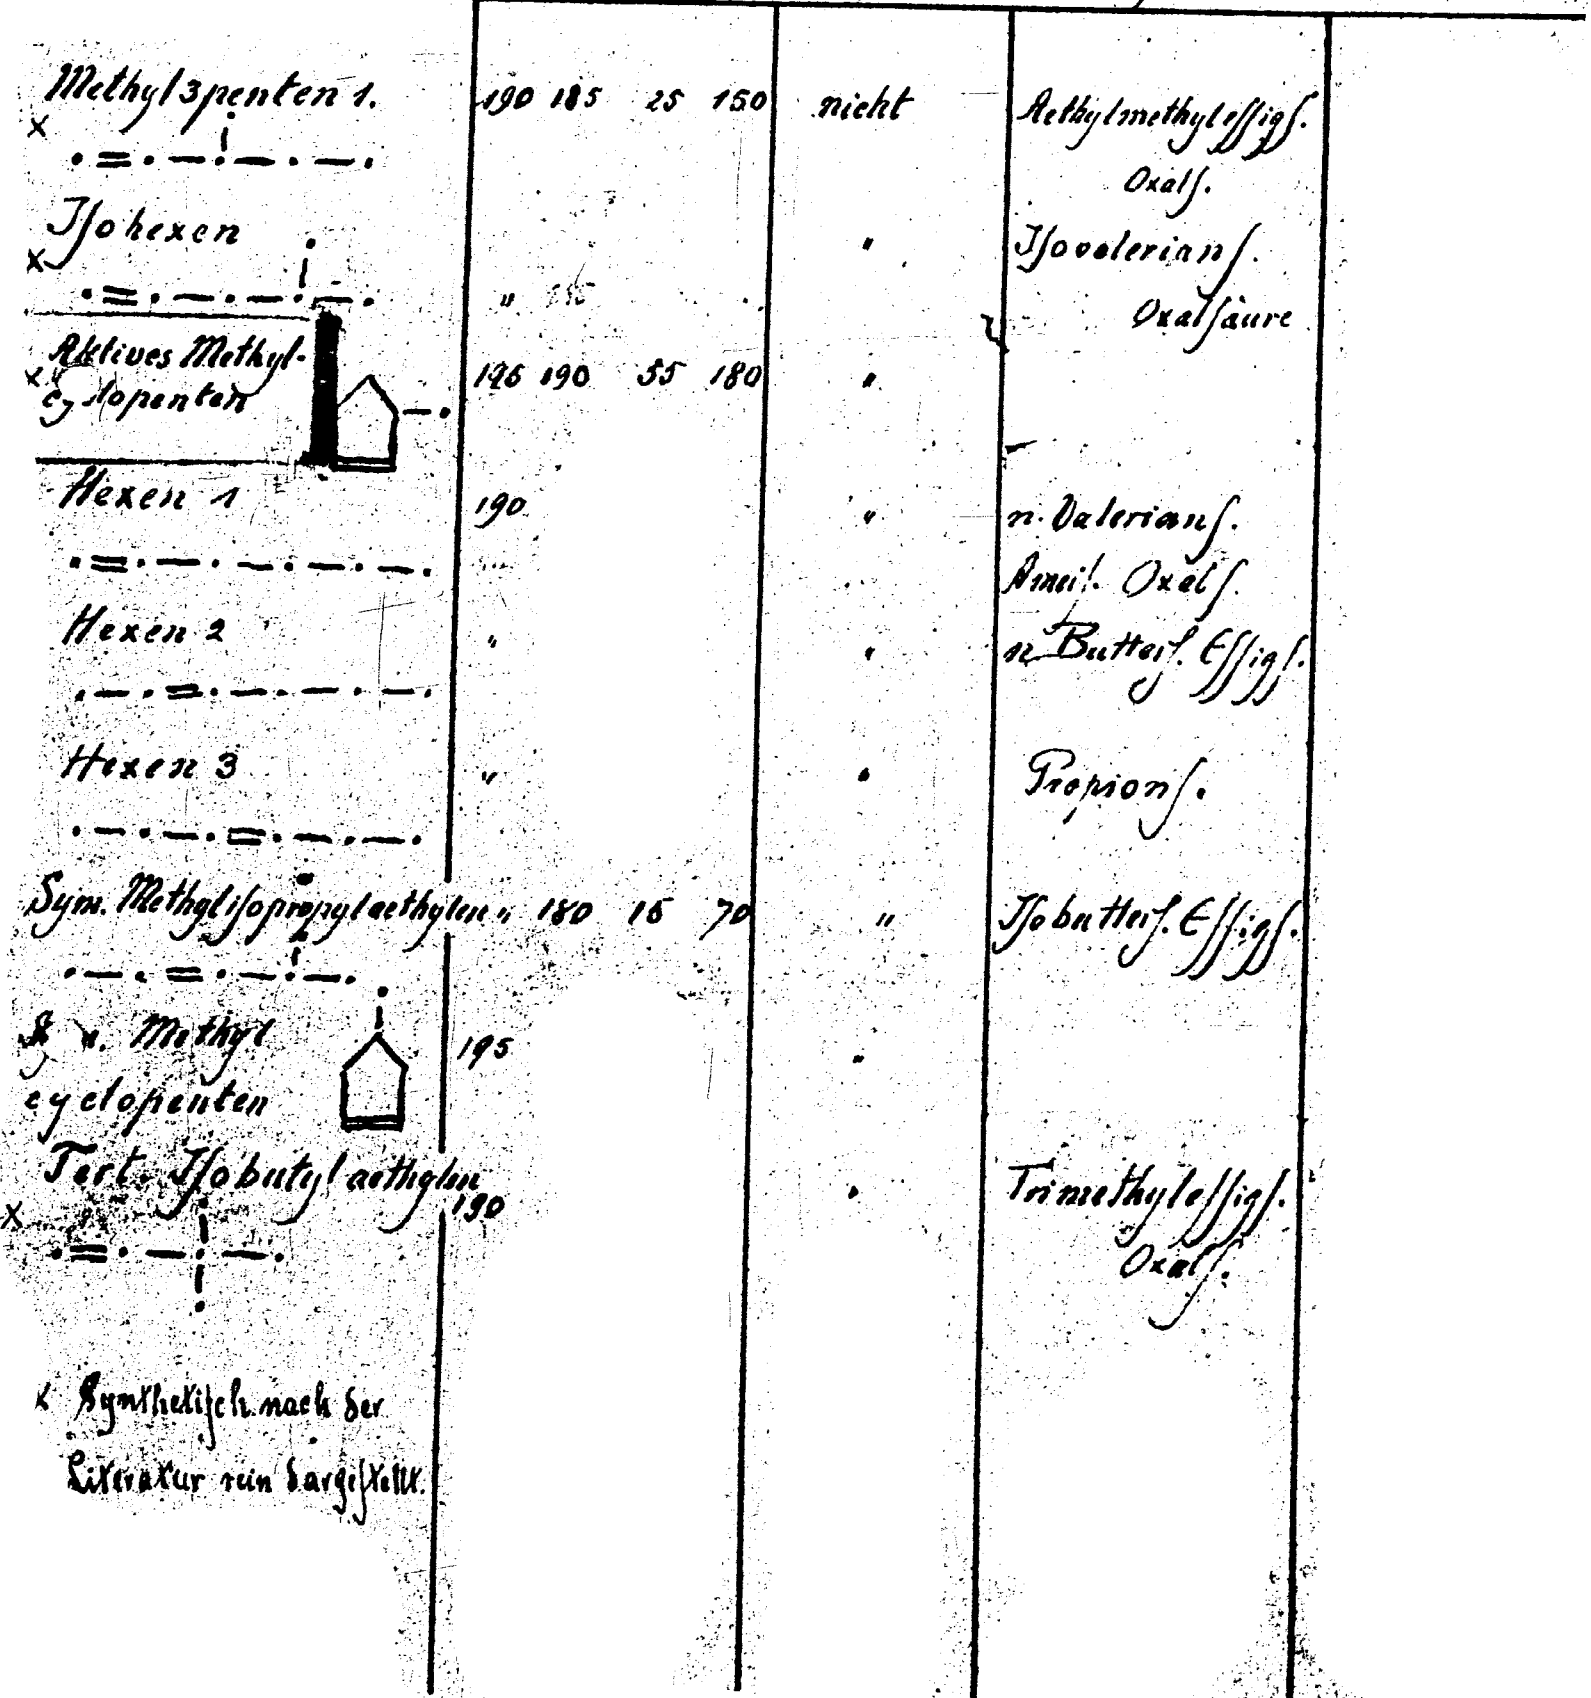 Methyl 3 penten 1. 190 185 25 150 nicht Aethylmethylessigs.
x
Oxals.
Isohexen " Isovalerians.
x
" Oxalsäure
Aktives Methyl-
x cyclopenten 190 55 180 "
Hexen 1 190 " n. Valerians.
Ameis. Oxals.
Hexen 2 " " n Butters. Essigs.
Hexen 3 " " Propions.
Sym. Methylisopropylaethylen " 180 70 " Isobutters. Essigs.
Methyl 195 "
cyclopenten
Tert. Isobutylaethylen " Trimethylessigs.
x 190
Oxals.
x Synthetisch nach der
Literatur rein dargestellt.